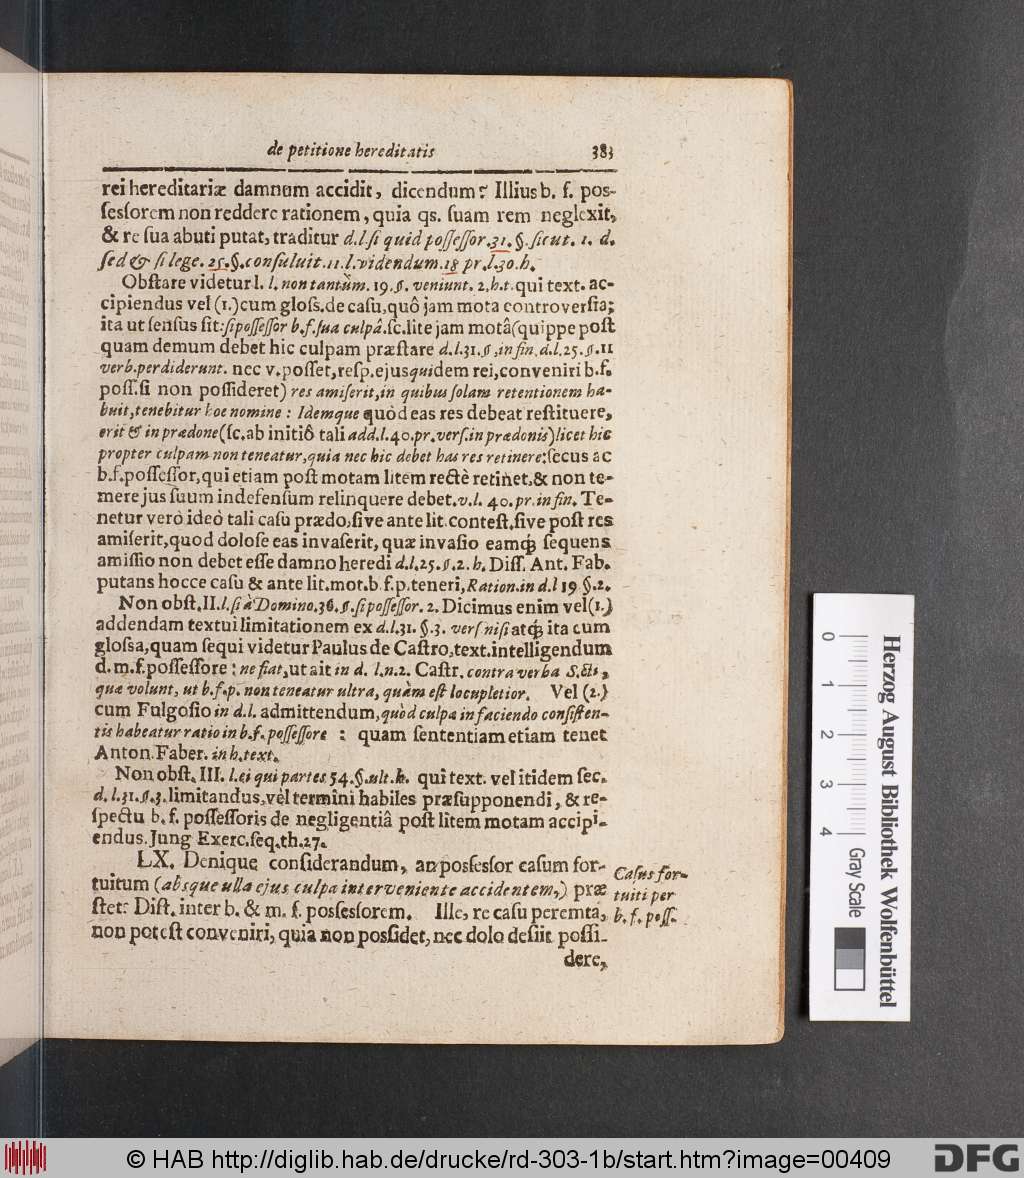 de petitione hereditatis 383
rei hereditariæ damnum accidit, dicendum? Illius b. f. pos-
ſesſorem non reddere rationem, quia qs. ſuam rem neglexit,
& re ſua abuti putat, traditur d. l. ſi quid poſſeſſor. 31. §. ſicut. 1. d.
ſed & ſi lege. 25. §. conſuluit. 11. l. videndum. 18 pr. l. 30. h.
Obſtare videtur l. l. non tantùm. 19. §. veniunt. 2. h. t. qui text. ac-
cipiendus vel (1.) cum gloſs. de caſu, quô jam mota controverſia;
ita ut ſenſus ſit: ſi poſſeſſor b. f. ſua culpâ. ſc. lite jam motâ (quippe poſt
quam demum debet hic culpam præſtare d. l. 31. §. in fin. d. l. 25. §. 11
verb. perdiderunt. nec v. poſſet, reſp. ejusquidem rei, conveniri b. f.
poſſ. ſi non poſſideret) res amiſerit, in quibus ſolam retentionem ha-
buit, tenebitur hoc nomine: Idemque quòd eas res debeat reſtituere,
erit & in prædone (ſc. ab initiô tali add. l. 40. pr. verſ. in prædonis) licet hic
propter culpam non teneatur, quia nec hic debet has res retinere: ſecus ac
b. f. poſſeſſor, qui etiam poſt motam litem rectè retinet, & non te-
mere jus ſuum indefenſum relinquere debet. v. l. 40. pr. in fin. Te-
netur verò ideò tali caſu prædo, ſive ante lit. conteſt. ſive poſt res
amiſerit, quod doloſe eas invaſerit, quæ invaſio eamq; ſequens
amiſſio non debet eſſe damno heredi d. l. 25. §. 2. h. Diſſ. Ant. Fab.
putans hocce caſu & ante lit. mot. b. f. p. teneri, Ration. in d. l 19 §. 2.
Non obſt. II. l. ſi à Domino. 36. §. ſi poſſeſſor. 2. Dicimus enim vel (1.)
addendam textui limitationem ex d. l. 31. §. 3. verſ niſi atq; ita cum
gloſsa, quam ſequi videtur Paulus de Caſtro, text. intelligendum
d. m. f. poſſeſſore: ne fiat, ut ait in d. l. n. 2. Caſtr. contra verba S. Cti,
quæ volunt, ut b. f. p. non teneatur ultra, quàm eſt locupletior. Vel (2.)
cum Fulgoſio in d. l. admittendum, quòd culpa in faciendo conſiſten-
tis habeatur ratio in b. f. poſſeſſore: quam ſententiam etiam tenet
Anton. Faber. in h. text.
Non obſt. III. l. ei qui partes 54. §. ult. h. qui text. vel itidem ſec.
d. l. 31. §. 3. limitandus, vèl termini habiles præſupponendi, & re-
ſpectu b. f. poſſeſſoris de negligentiâ poſt litem motam accipi-
endus. Jung Exerc. ſeq. th. 27.
LX. Denique conſiderandum, an posſesſor caſum for-
tuitum (absque ulla ejus culpa interveniente accidentem,) præ
ſtet? Diſt. inter b. & m. f. posſesſorem. Ille, re caſu peremta,
non poteſt conveniri, quia non posſidet, nec dolo deſiit poſſi-
dere,
Caſus for-
tuiti per
b. f. poſſ.
0 1 2 3 4
Herzog August Bibliothek Wolfenbüttel
Gray Scale
© HAB http://diglib.hab.de/drucke/rd-303-1b/start.htm?image=00409
DFG